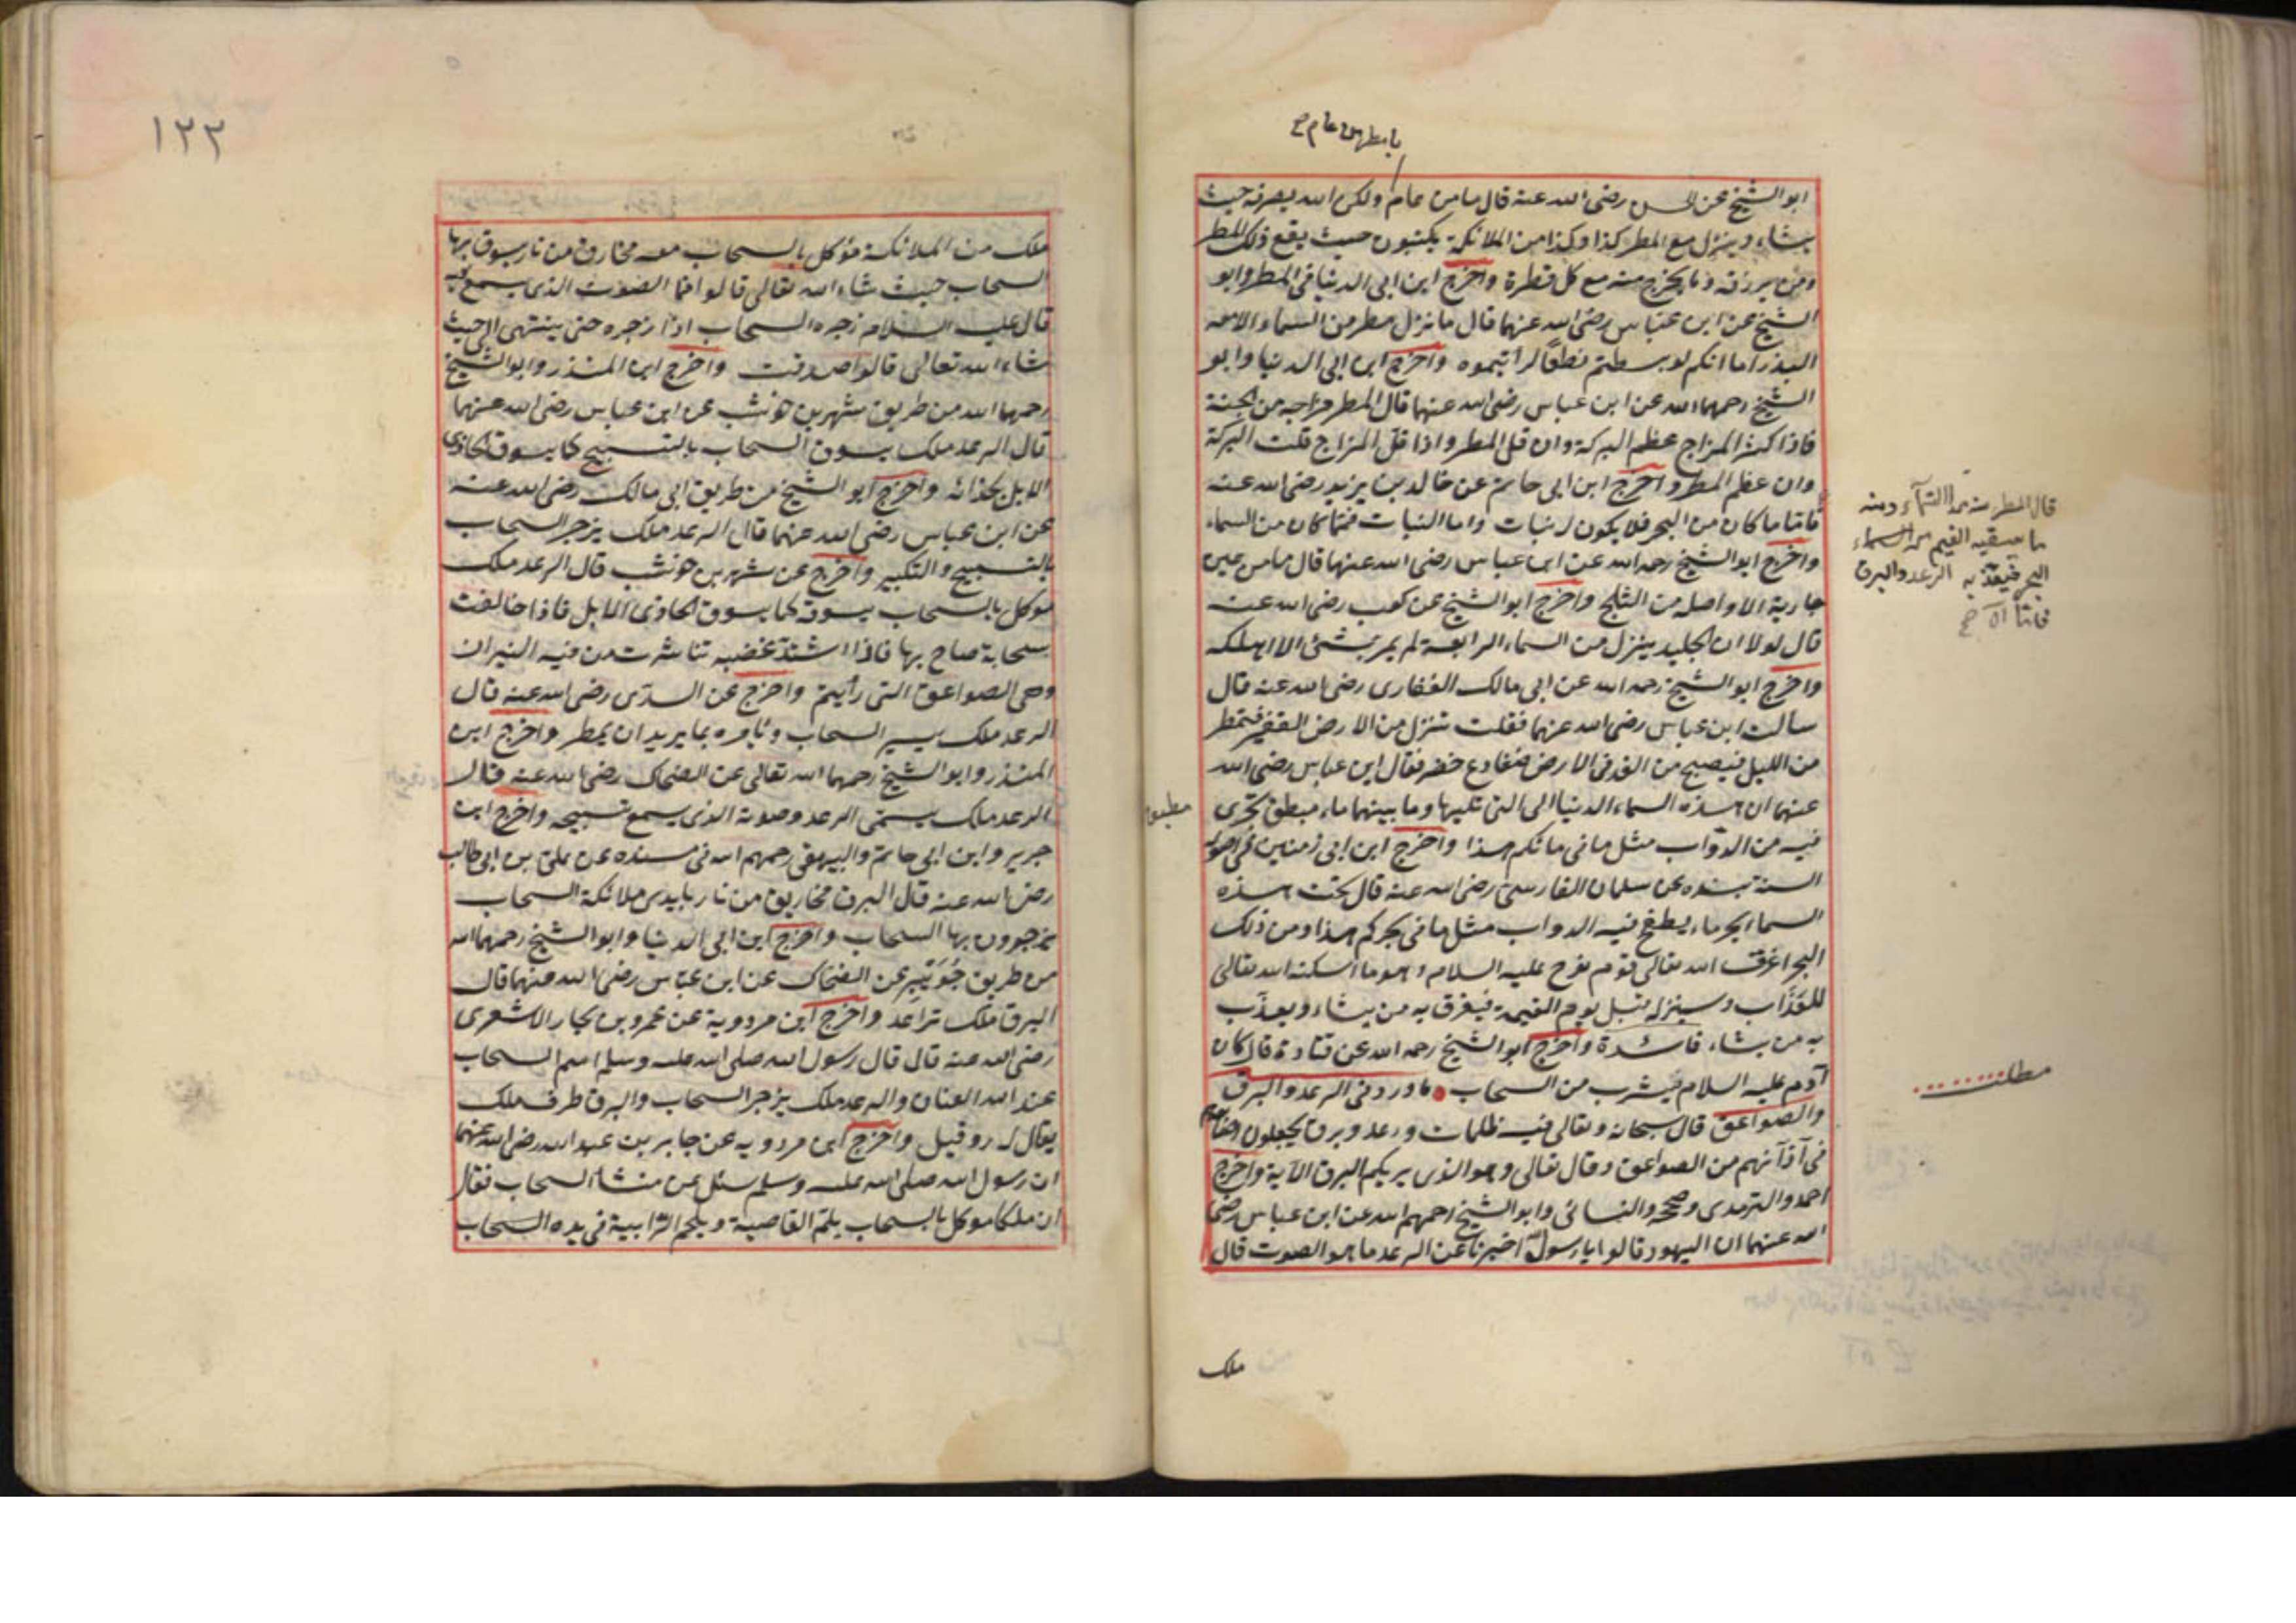 بامطر من عام صح
ابو الشيخ عن الحسن رضى الله عنه قال ما من عام ولكن الله يصرفه حيث
يشاء وينزل مع المطر كذا وكذا من الملائكة يكتبون حيث يقع ذلك المطر
ومن يرزقه وما يخرج منه مع كل قطرة واخرج ابن ابى الدنيا فى المطر وابو
الشيخ عن ابن عباس رضى الله عنهما قال ما نزل مطر من السماء الا معه
البذر اما انكم لو بسطتم نطعا لرأيتموه واخرج ابن ابى الدنيا وابو
الشيخ رحمهما الله عن ابن عباس رضى الله عنهما قال المطر مزاجه من الجنة
فاذا كثر المزاج عظم البركة وان قل المطر واذا قل المزاج قلت البركة
وان عظم المطر واخرج ابن ابى حاتم عن خالد بن يزيد رضى الله عنه
فاما ما كان من البحر فلا يكون له نبات واما النبات فما كان من السماء
واخرج ابو الشيخ رحمه الله عن ابن عباس رضى الله عنهما قال ما من عين
جارية الا واصله من الثلج واخرج ابو الشيخ عن كعب رضى الله عنه
قال لولا ان الجليد ينزل من السماء الرابعة لم يمر بشئ الا اهلكه
واخرج ابو الشيخ رحمه الله عن ابى مالك الغفارى رضى الله عنه قال
سالت ابن عباس رضى الله عنهما فقلت تنزل من الارض القفر فتمطر
من الليل فيصبح من الغد فى الارض ضفادع خضر فقال ابن عباس رضى الله
عنهما ان هذه السماء الدنيا الى التى تليها وما بينهما ماء مطبق تجرى
فيه من الدواب مثل ما فى مائكم هذا واخرج ابن ابى زمنين فى اصول
السنة بسنده عن سلمان الفارسى رضى الله عنه قال تحت هذه
السما بحر ماء يطفح فيه الدواب مثل ما فى بحركم هذا ومن ذلك
البحر اغرق الله تعالى قوم نوح عليه السلام وهو ما اسكنه الله تعالى
للعذاب وسينزله قبل يوم القيمة فيغرق به من يشاء ويعذب
به من يشاء فائدة واخرج ابو الشيخ رحمه الله عن قتادة قال كان
آدم عليه السلام يشرب من السحاب ما ورد فى الرعد والبرق
والصواعق قال سبحانه وتعالى فيه ظلمات ورعد وبرق يجعلون اصابعهم
فى آذانهم من الصواعق وقال تعالى وهو الذى يريكم البرق الآية واخرج
احمد والترمذى وصححه والنسائى وابو الشيخ رحمهم الله عن ابن عباس رضى
الله عنهما ان اليهود قالوا يا رسول الله اخبرنا عن الرعد ما هو الصوت قال
ملك
قال المطر منه من السماء ومنه
ما يسقيه الغيم من
البحر فيعذبه الرعد والبرق
فاما الا صح
مطلب
مطبق
١٢٢
ملك من الملائكة موكل بالسحاب معه مخاريق من نار يسوق بها
السحاب حيث شاء الله تعالى قالوا فما الصوت الذى يسمع فيه
قال عليه السلام زجره السحاب اذا زجره حتى ينتهى الى حيث
شاء الله تعالى قالوا صدقت واخرج ابن المنذر وابو الشيخ
رحمهما الله من طريق شهر بن حوشب عن ابن عباس رضى الله عنهما
قال الرعد ملك يسوق السحاب بالتسبيح كما يسوق الحادى
الابل بحدائه واخرج ابو الشيخ من طريق ابى مالك رضى الله عنه
عن ابن عباس رضى الله عنهما قال الرعد ملك يزجر السحاب
بالتسبيح والتكبير واخرج عن شهر بن حوشب قال الرعد ملك
موكل بالسحاب يسوقه كما يسوق الحادى الابل فاذا خالفت
سحابة صاح بها فاذا اشتد غضبه تناثرت من فيه النيران
وهى الصواعق التى رأيتم واخرج عن السدى رضى الله عنه قال
الرعد ملك يسير السحاب ويأمره بما يريد ان يمطر واخرج ابن
المنذر وابو الشيخ رحمهما الله تعالى عن الضحاك رضى الله عنه قال
الرعد ملك يسمى الرعد وصوته الذى يسمع تسبيحه واخرج ابن
جرير وابن ابى حاتم والبيهقى رحمهم الله فى مسنده عن على بن ابى طالب
رضى الله عنه قال البرق مخاريق من نار بايدى ملائكة السحاب
يزجرون بها السحاب واخرج ابن ابى الدنيا وابو الشيخ رحمهما الله
من طريق جويبر عن الضحاك عن ابن عباس رضى الله عنهما قال
البرق ملك تراعد واخرج ابن مردوية عن عمرو بن بجار الاشعرى
رضى الله عنه قال قال رسول الله صلى الله عليه وسلم اسم السحاب
عند الله العنان والرعد ملك يزجر السحاب والبرق طرف ملك
يقال له روفيل واخرج ابن مردويه عن جابر بن عبد الله رضى الله عنهما
ان رسول الله صلى الله عليه وسلم سئل عن منشأ السحاب فقال
ان ملكا موكل بالسحاب يلم القاصية ويلحم الرابية فى يده السحاب